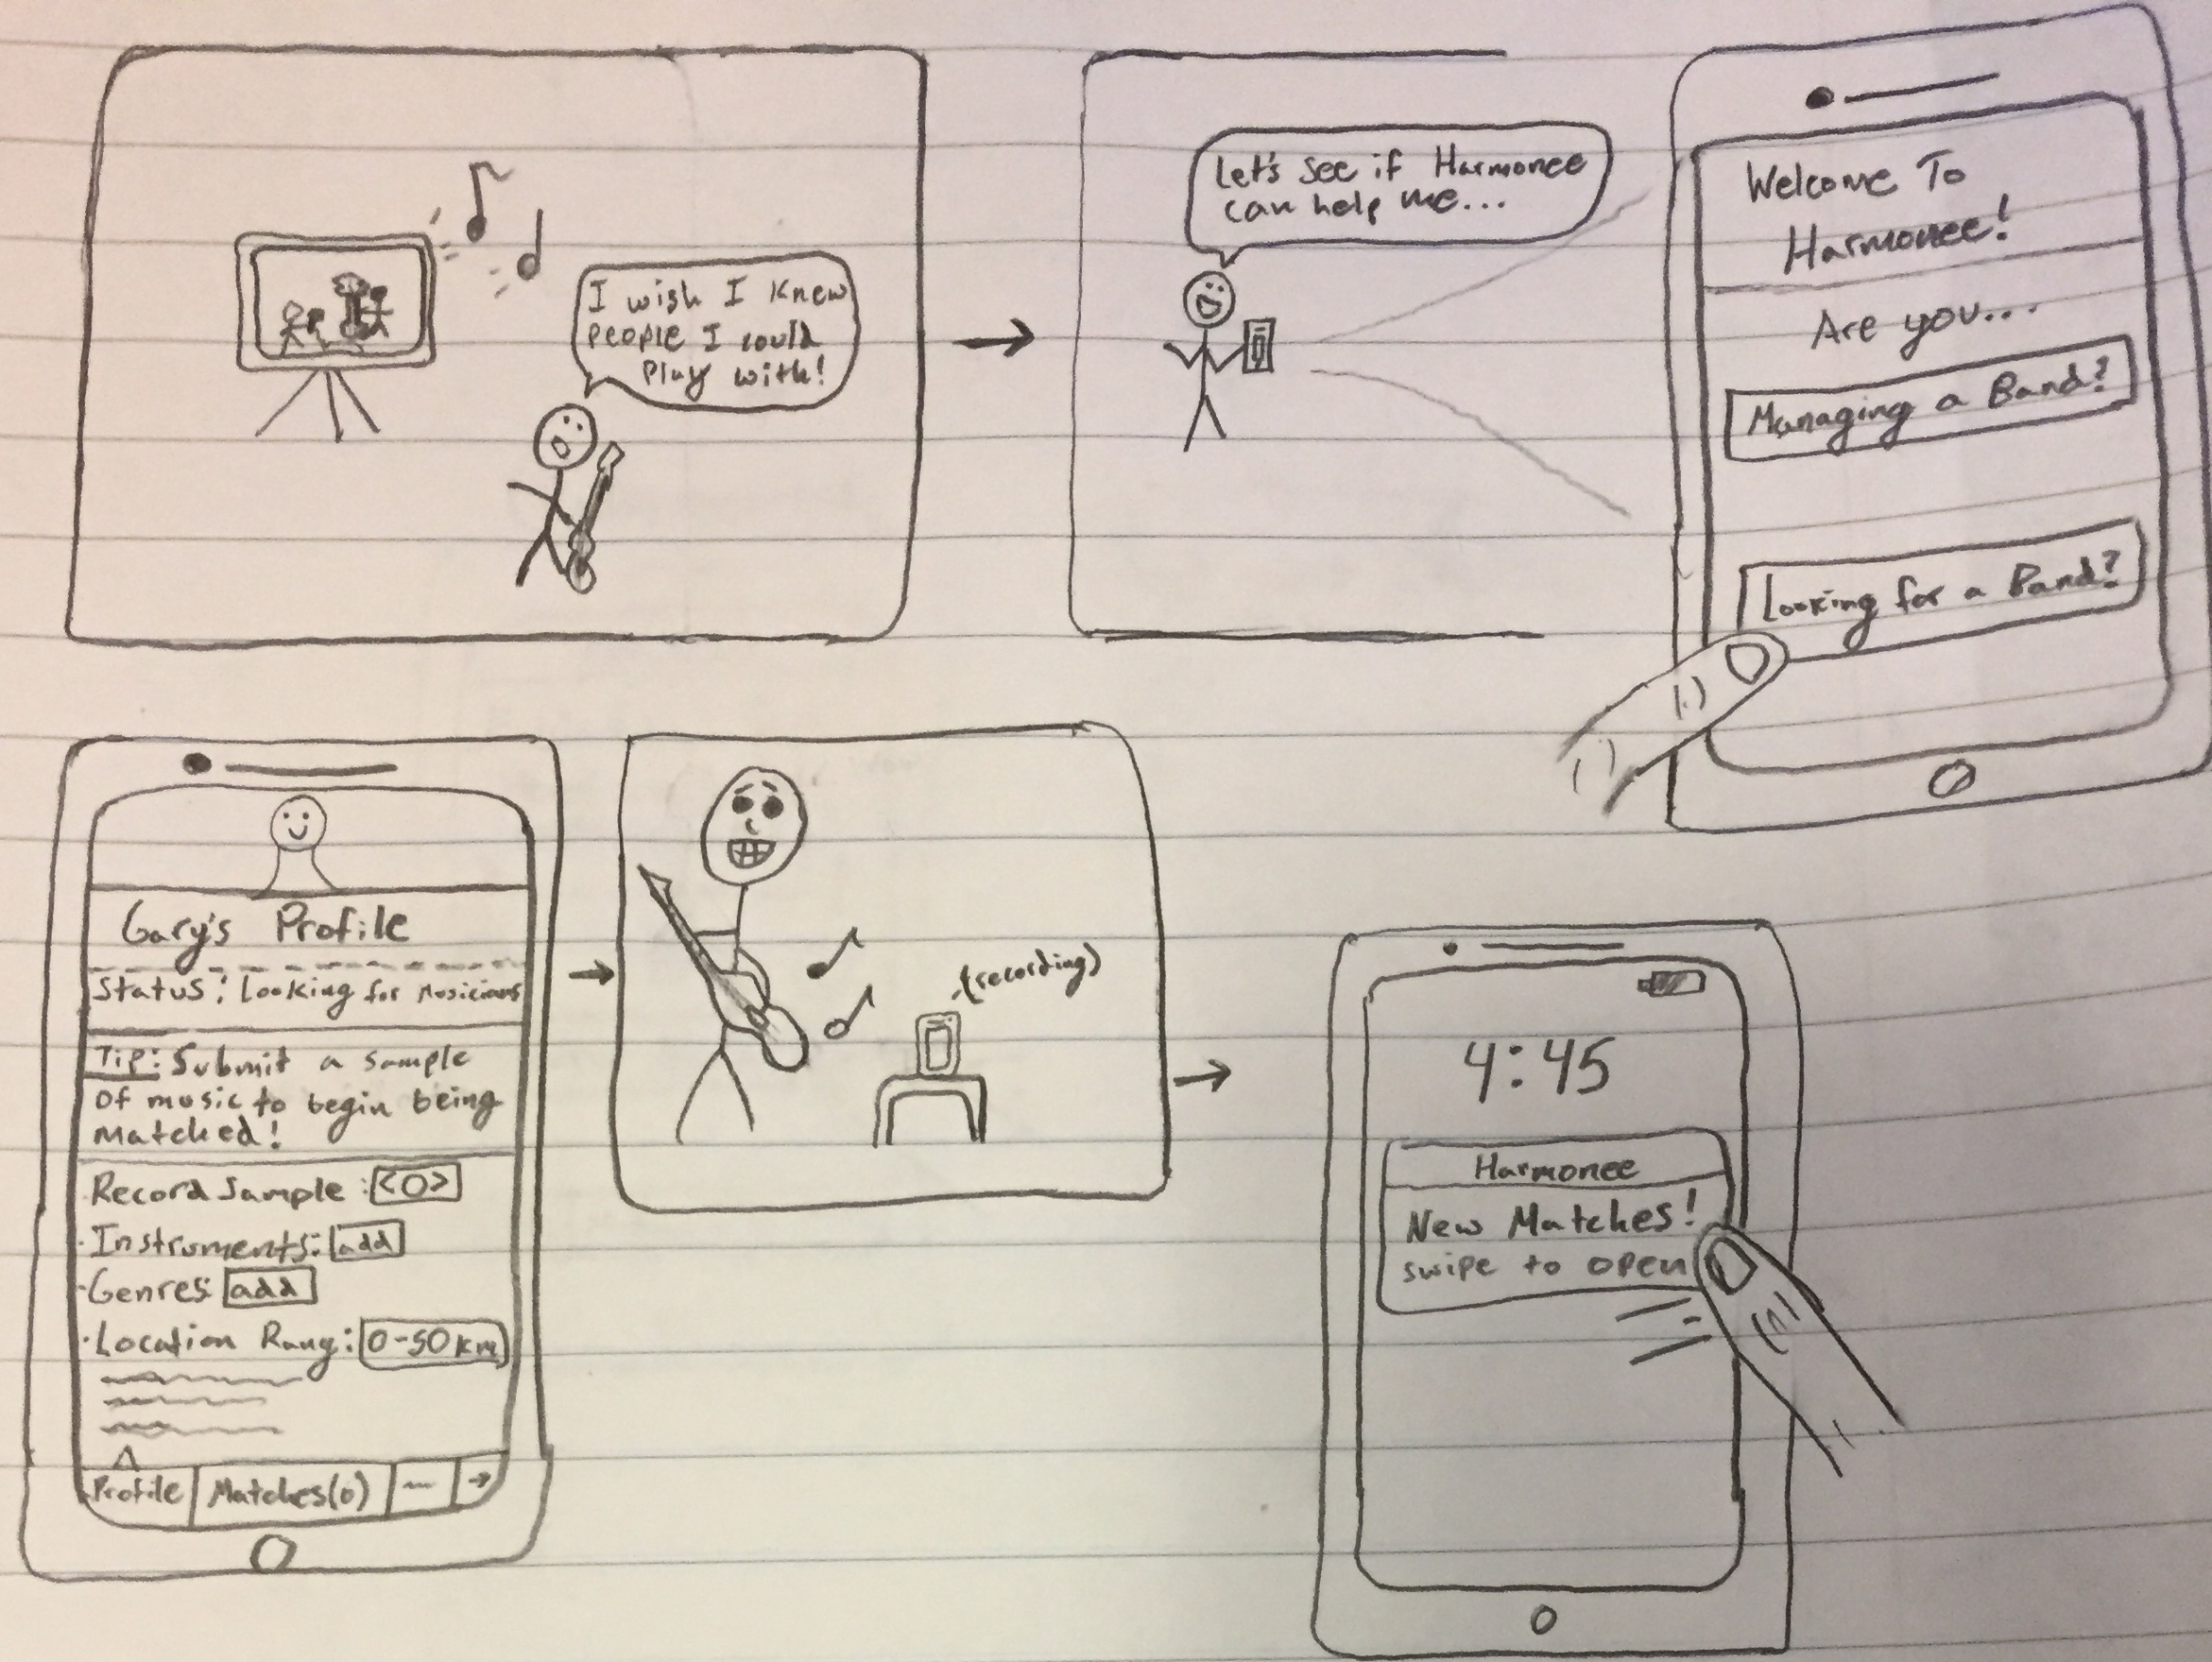 I wish I knew
people I could
play with!
Let's see if Harmonee
can help me...
Welcome To
Harmonee!
Are you...
Managing a Band?
Looking for a Band?
Gary's Profile
Status: Looking for Musicians
Tip: Submit a sample
of music to begin being
matched!
Record Sample: <O>
· Instruments: add
· Genres: add
· Location Rang: 0-50 km
Profile Matches(0) →
(recording)
4:45
Harmonee
New Matches!
swipe to open